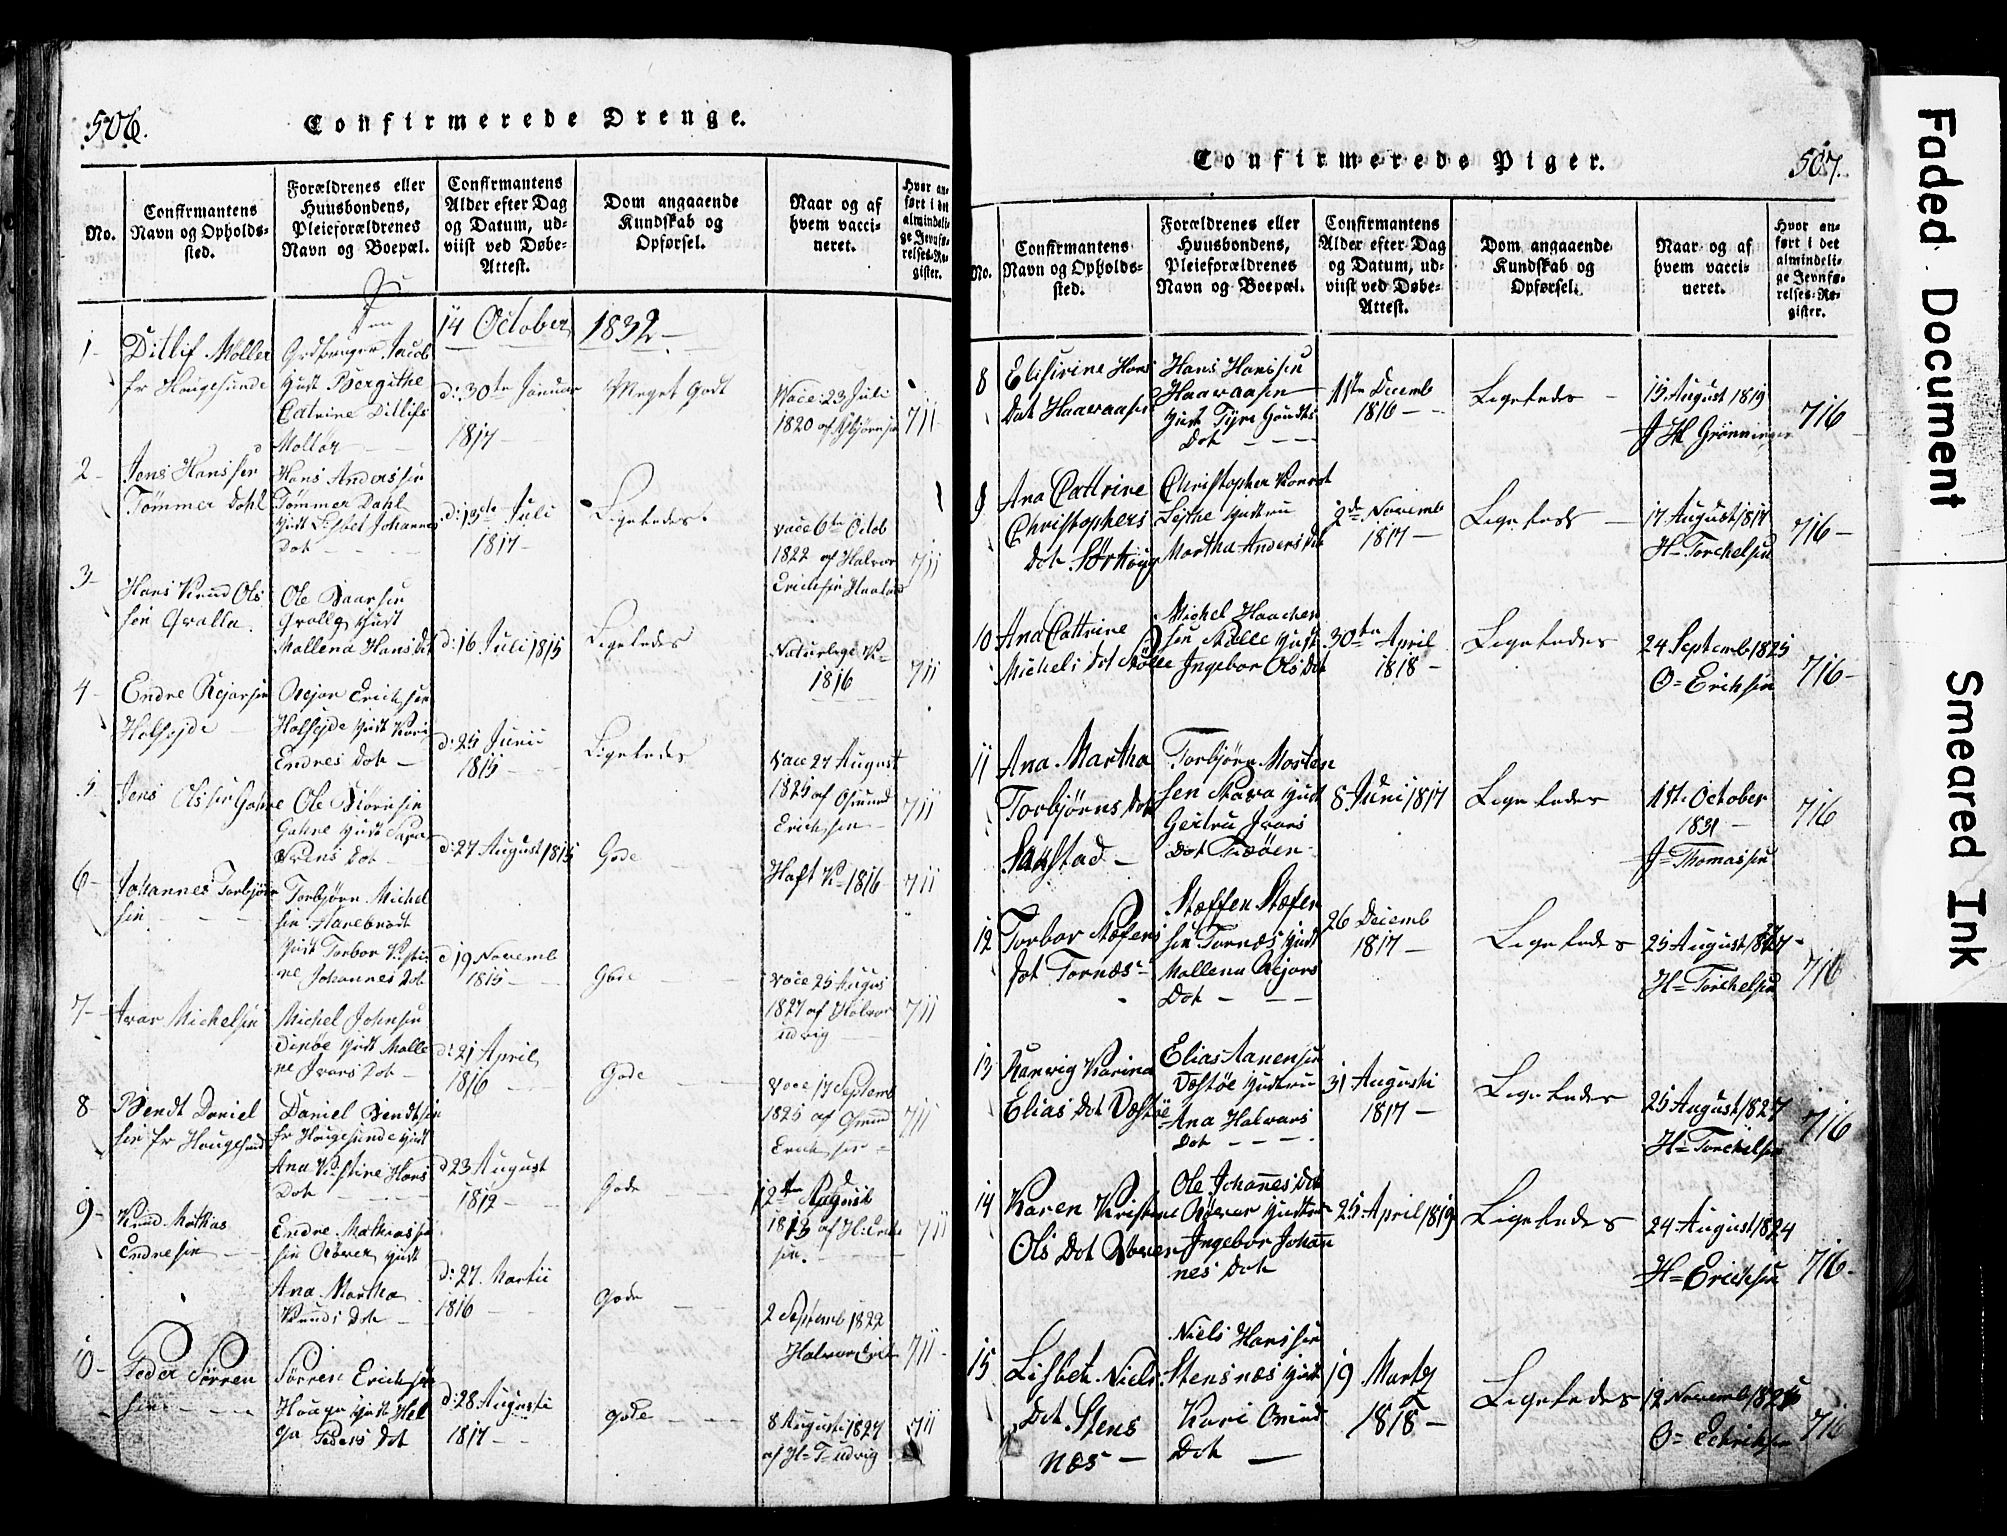 506.
Confirmerede Drenge.
No.
Confirmantens
Navn og Opholds-
sted.
Forældrenes eller
Huusbondens,
Pleieforældrenes
Navn og Boepæl.
Confirmantens
Alder efter Dag
og Datum, ud-
viist ved Døbe-
Attest.
Dom angaaende
Kundskab og
Opførsel.
Naar og af
hvem vacci-
neret.
Hvor an-
ført i det
almindeli-
ge Jevnfø-
relses-Re-
gister.
14 October 1832
1
Ditlif Møller
fr Hougesunde
Jacob
Hust Bergithe
Catrine Ditlifs
Møller
d: 30te Januar
1817
Meget Godt
Vacc: 23 Juli
1820 af
711
2
Jens Hanssen
Tømmer Dahl
Hans Anderssen
Tømmer Dahl
Hust Lisbet Johannes
Dot
d: 13de Juli
1817
Ligeledes
Vacc 6te Octob
1822 af Halvor
Erichsen
711
3
Hans Knud Ols
sen Qvalla.
Ole
Hust
Mallena Hans Dot
d: 16 Juli 1815
Ligeledes
Naturlige K
1816
711
4
Endre Rejorsen
Rejor Erichsen
Hust Kari
Endres Dot
d: 25 Junii
1815
Ligeledes
Vacc 27 August
1825 af Osmund
Erichsen
711
5
Jens Olssen
Ole
Hust
Dot
d: 27 August 1815
Gode
Haft K 1816
711
6
Johannes Torbjørn
sen
Torbjørn Michel
sen
Hust Torbor Kisti
ne Johannes Dot
d 19 Novemb
1815
Gode
Vacc 25 Augus
1827 af Halvor
Udvig
711
7
Ivar Michelsen
Michel Johnsen
Hust Malle
ne Ivars Dot
d: 21 April
1816
Gode
Vacc 17 Septemb
1825 af Osmund
Erichsen
711
8
Bendt Daniel
sen fr Hougesund
Daniel Bendtsen
fr Hougesunde Hust
Ana Kistine Hans
Dot
d 23 August
1812
Gode
12te August
1813 af H: Erich
sen.
711
9
Knud Mathias
Endresen
Endre Mathiassen
sen Røvær Hust
Ana Martha
Knuds Dot
d: 27 Martii
1816
Gode
2 Septemb 1822
Halvor Erich
711
10
Peder Sørren
sen
Sørren Erichsen
Hust Hel
ga Peders Dot
d: 28 Augusti
1817
gode
8 Augusti 1827
af H= T= udvig
711
507.
Confirmerede Piger.
No.
Confirmantens
Navn og Opholds-
sted.
Forældrenes eller
Huusbondens,
Pleieforældrenes
Navn og Boepæl.
Confirmantens
Alder efter Dag
og Datum, ud-
viist ved Døbe-
Attest.
Dom angaaende
Kundskab og
Opførsel.
Naar og af
hvem vacci-
neret.
Hvor an-
ført i det
almindeli-
ge Jevnfø-
relses-Re-
gister.
8
Elisirine Hans
Dot Haavaasen
Hans Hanssen
Haavaasen
Hust Tyri Goudes
Dot
1ste Decemb
1816
Ligeledes
15 August 1819
J H Grønninge
716
9
Ana Cattrine
Christophers
Dot Sørhoug
Christopher
Hustru
Martha Anders Dot
2de Novemb
1817
Ligeleds
17 August 1817
H= Torchelsen
716
10
Ana Cattrine
Michels Dot Mølle
Michel Haachen
sen Mølle Hust
Ingebor Ols Dot
30te April
1818
Ligeledes
24 Septemb 1825
O= Erichsen
716
11
Ana Martha
Torbjørns Dot
Torbjørn Morten
sen Hust
Gertru Ivars
Dot
8 Juni 1817
Ligeledes
1st: October
1831
J= Thomassen
716
12
Torbor Stefens
Dot Tornæs
Steffen Stefen
sen Tornæs Hust
Mallena Rejors
Dot
26 Decemb
1817
Ligeledes
25 August 1827
H= Torchelsen
716
13
Ranvig Karina
Elias Dot
Elias Aanensen
Hustru
Ana Halvars
Dot
31 Augusti
1817
Ligeledes
25 August 1827
H= Torchelsen
716
14
Karen Kristine
Ols Dot Røvær
Ole Johannes Dot
Røvær Hustru
Ingebor Johan
nes Dot
25 April 1819
Ligeledes
24 August 1824
H= Erichsen
716
15
Lisbet Niels
Dot Stens
næs
Niels Hanssen
Stensnæs Hust
Kari
Dot
19 Martz
1818
Ligeledes
12 Novemb
O= Erichsen
716
Faded Document
Smeared Ink